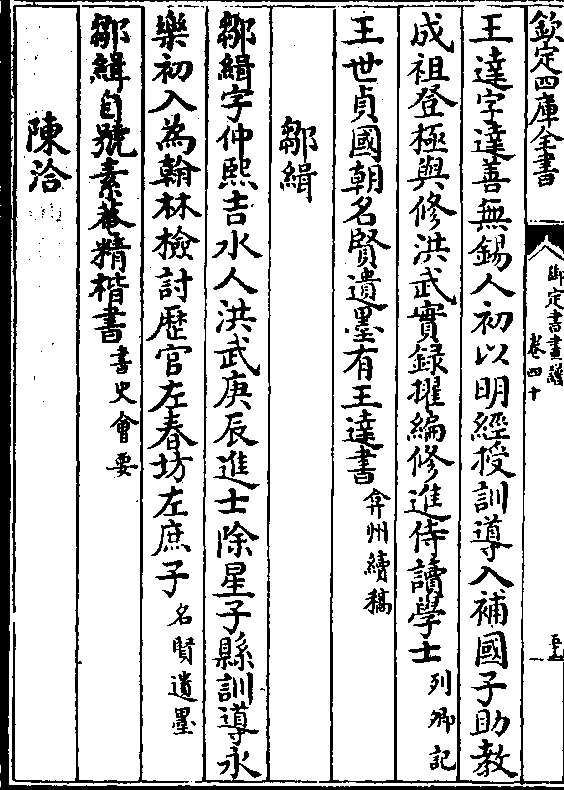 欽定四庫全書
御定書畫譜
卷四十
王達字達善無錫人初以明經授訓導入補國子助教
成祖登極與修洪武實録擢編修進侍讀學士列卿記
王世貞國朝名賢遺墨有王達書弇州續稿
鄒緝
鄒緝字仲熙吉水人洪武庚辰進士除星子縣訓導永
樂初入為翰林檢討歷官左春坊左庶子名賢遺墨
鄒緝自號素菴精楷書書史會要
陳洽